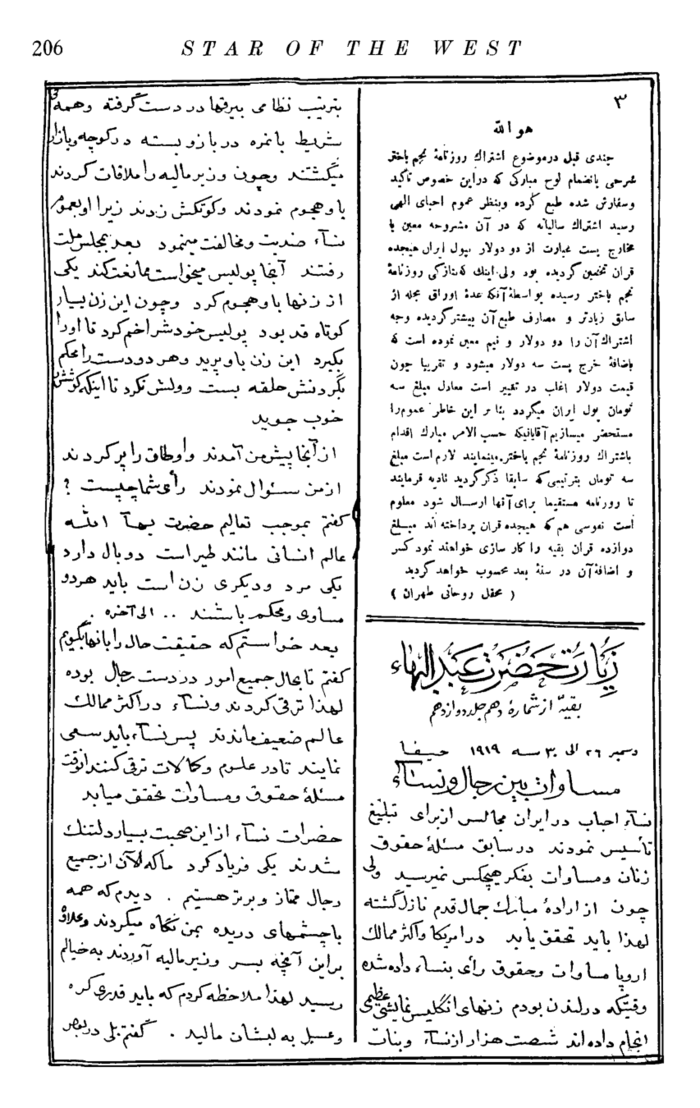 206 STAR OF THE WEST
۳
هو الله
چندی قبل درموضوع اشتراك روزنامهٔ نجم باختر
شرحی بانضمام لوح مبارکی که دراین خصوص تاکید
وسفارش شده طبع کرده وبنظر عموم احبای الهی
رسید اشتراك سالیانه که در آن مشروحه معین با
مخارج پست عبارت از دو دولار بپول ایران هیجده
قران تخمین گردیده بود ولی اینك که تازکی روزنامهٔ
نجم باختر رسیده بواسطهٔ آنکه عدهٔ اوراق مجله از
سابق زیادتر و مصارف طبع آن بیشتر گردیده وجه
اشتراك آن را دو دولار و نیم معین نموده است که
باضافهٔ خرج پست سه دولار میشود و تقریبا چون
قیمت دولار اغلب در تغییر است معادل مبلغ سه
تومان پول ایران میگردد بنا بر این خاطر عموم را
مستحضر میسازیم آقایانیکه حسب الامر مبارك اقدام
باشتراك روزنامهٔ نجم باختر مینمایند لازم است مبلغ
سه تومان بترتیبی که سابقا ذکر گردید تادیه فرمایند
تا روزنامه مستقیما برای آنها ارسال شود معلوم
است نفوسی هم که هیجده قران پرداخته اند مبلغ
دوازده قران بقیه را کار سازی خواهند نمود کسر
و اضافهٔ آن در سنهٔ بعد محسوب خواهد گردید
( محفل روحانی طهران )
زیارت حضرت عبدالبهاء
بقیهٔ از شمارهٔ دهم جلد دوازدهم
دسمبر ۲۶ الی ۳۰ سنه ۱۹۱۹ حیفا
مساوات بین رجال و نساء
نسآء احباب در ایران مجالس از برای تبلیغ
تأسیس نمودند در سابق مسئلهٔ حقوق
زنان ومساوات بفکر هیچکس نمیرسید ولی
چون از ارادهٔ مبارك جمال قدم نازل گشته
لهذا باید تحقق یابد در امریکا و اکثر ممالك
اروپا مساوات وحقوق رأی بنساء داده شده
وقتیکه در لندن بودم زنهای انگلیس نمایشی عظیمی
انجام داده اند شصت هزار از نسآء وبنات
بترتیب نظامی بیرقها در دست گرفته وهمه
شریط با نمره در بازو بسته در کوچه وبازار
میگشتند وچون وزیر مالیه را ملاقات کردند
باو هجوم نمودند وکوتکش زدند زیرا او بعموم
نسآء ضدیت ومخالفت مینمود بعد بمجلس ملت
رفتند آنجا پولیس میخواست ممانعت کند یکی
از زنها باو هجوم کرد وچون این زن بسیار
کوتاه قد بود پولیس خودش را خم کرد تا اورا
بگیرد این زن باو پرید وهر دو دست را محکم
بگردنش حلقه بست وولش نکرد تا اینکه گوشش
خوب جوید
از آنجا پیش من آمدند واوطاق را پر کردند
از من سئوال نمودند رأی شما چیست ؟
گفتم بموجب تعالیم حضرت بهآء الله
عالم انسانی مانند طیر است دو بال دارد
یکی مرد ودیگری زن است باید هر دو
مساوی ومحکم باشند .. الی آخره .
بعد خواستم که حقیقت حال را بآنها بگویم
گفتم تا بحال جمیع امور در دست رجال بوده
لهذا ترقی کردند ونسآء در اکثر ممالك
عالم ضعیف ماندند پس نسآء باید سعی
نمایند تا در علوم وکمالات ترقی کنند آنوقت
مسئلهٔ حقوق ومساوات تحقق میابد
حضرات نسآء از این صحبت بسیار دلتنك
شدند یکی فریاد کرد ما که الآن از جمیع
رجال ممتاز وبرتر هستیم . دیدم که همه
با چشمهای دریده بمن نگاه میکردند وعلاوه
براین آنچه بسر وزیر مالیه آوردند به خیالم
رسید لهذا ملاحظه کردم که باید قدری کره
وعسل به لبشان مالید . گفتم بلی در بعضی